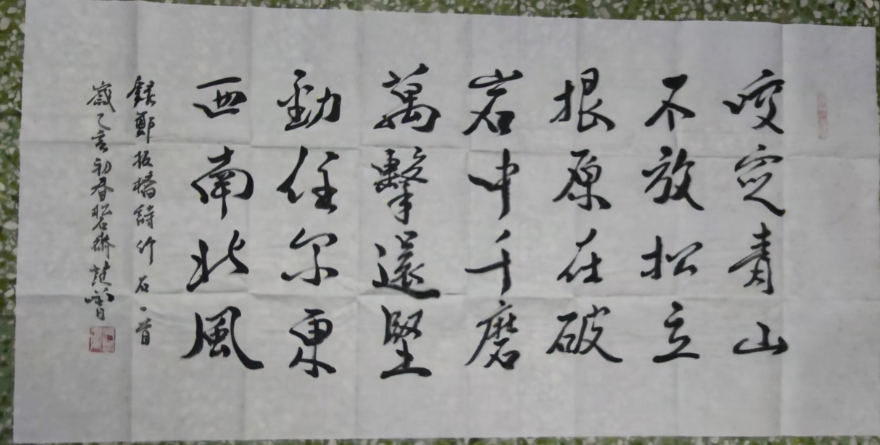 咬定青山
不放松立
根原在破
岩中千磨
萬擊還堅
勁任尔東
西南北風
錄鄭板橋詩竹石一首
歲乙亥初春